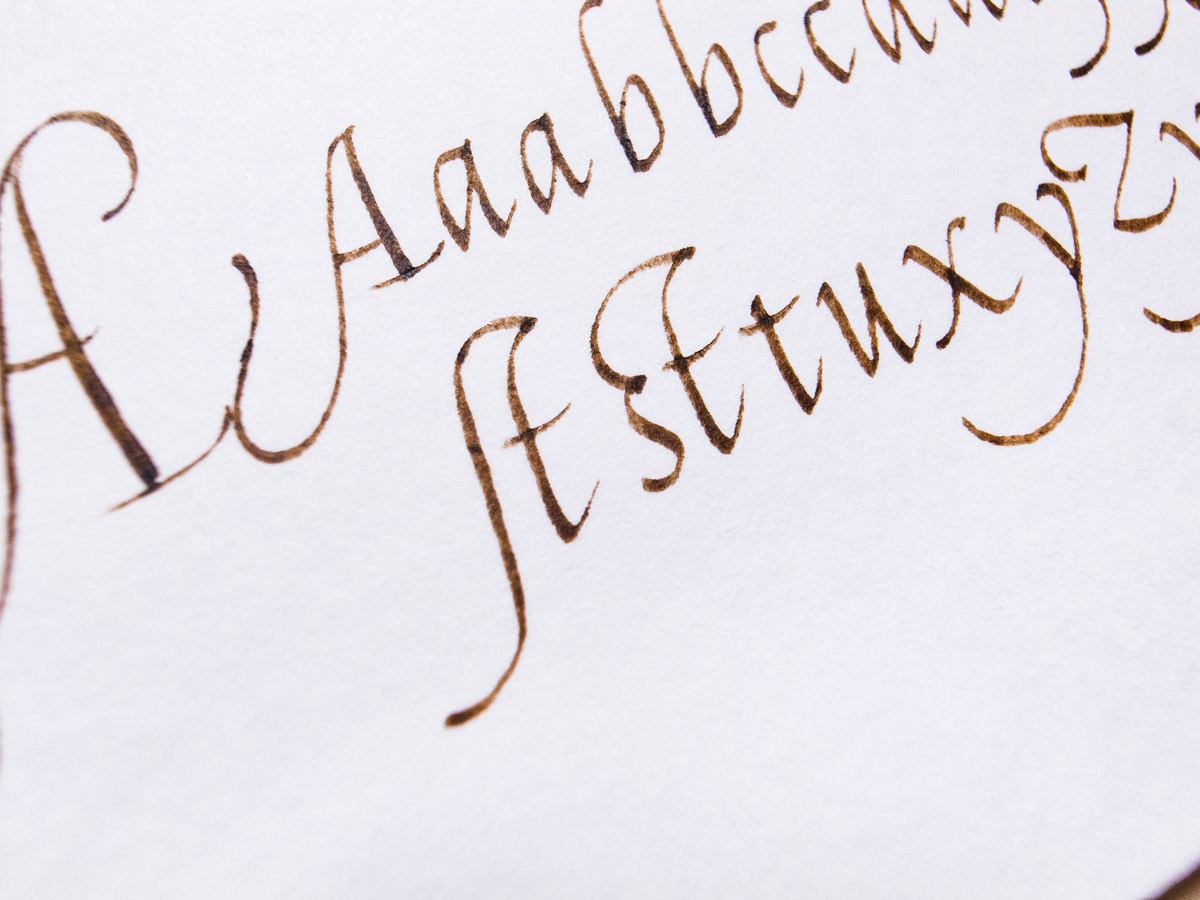 A A a a b b c c d
ſt st t u x y z